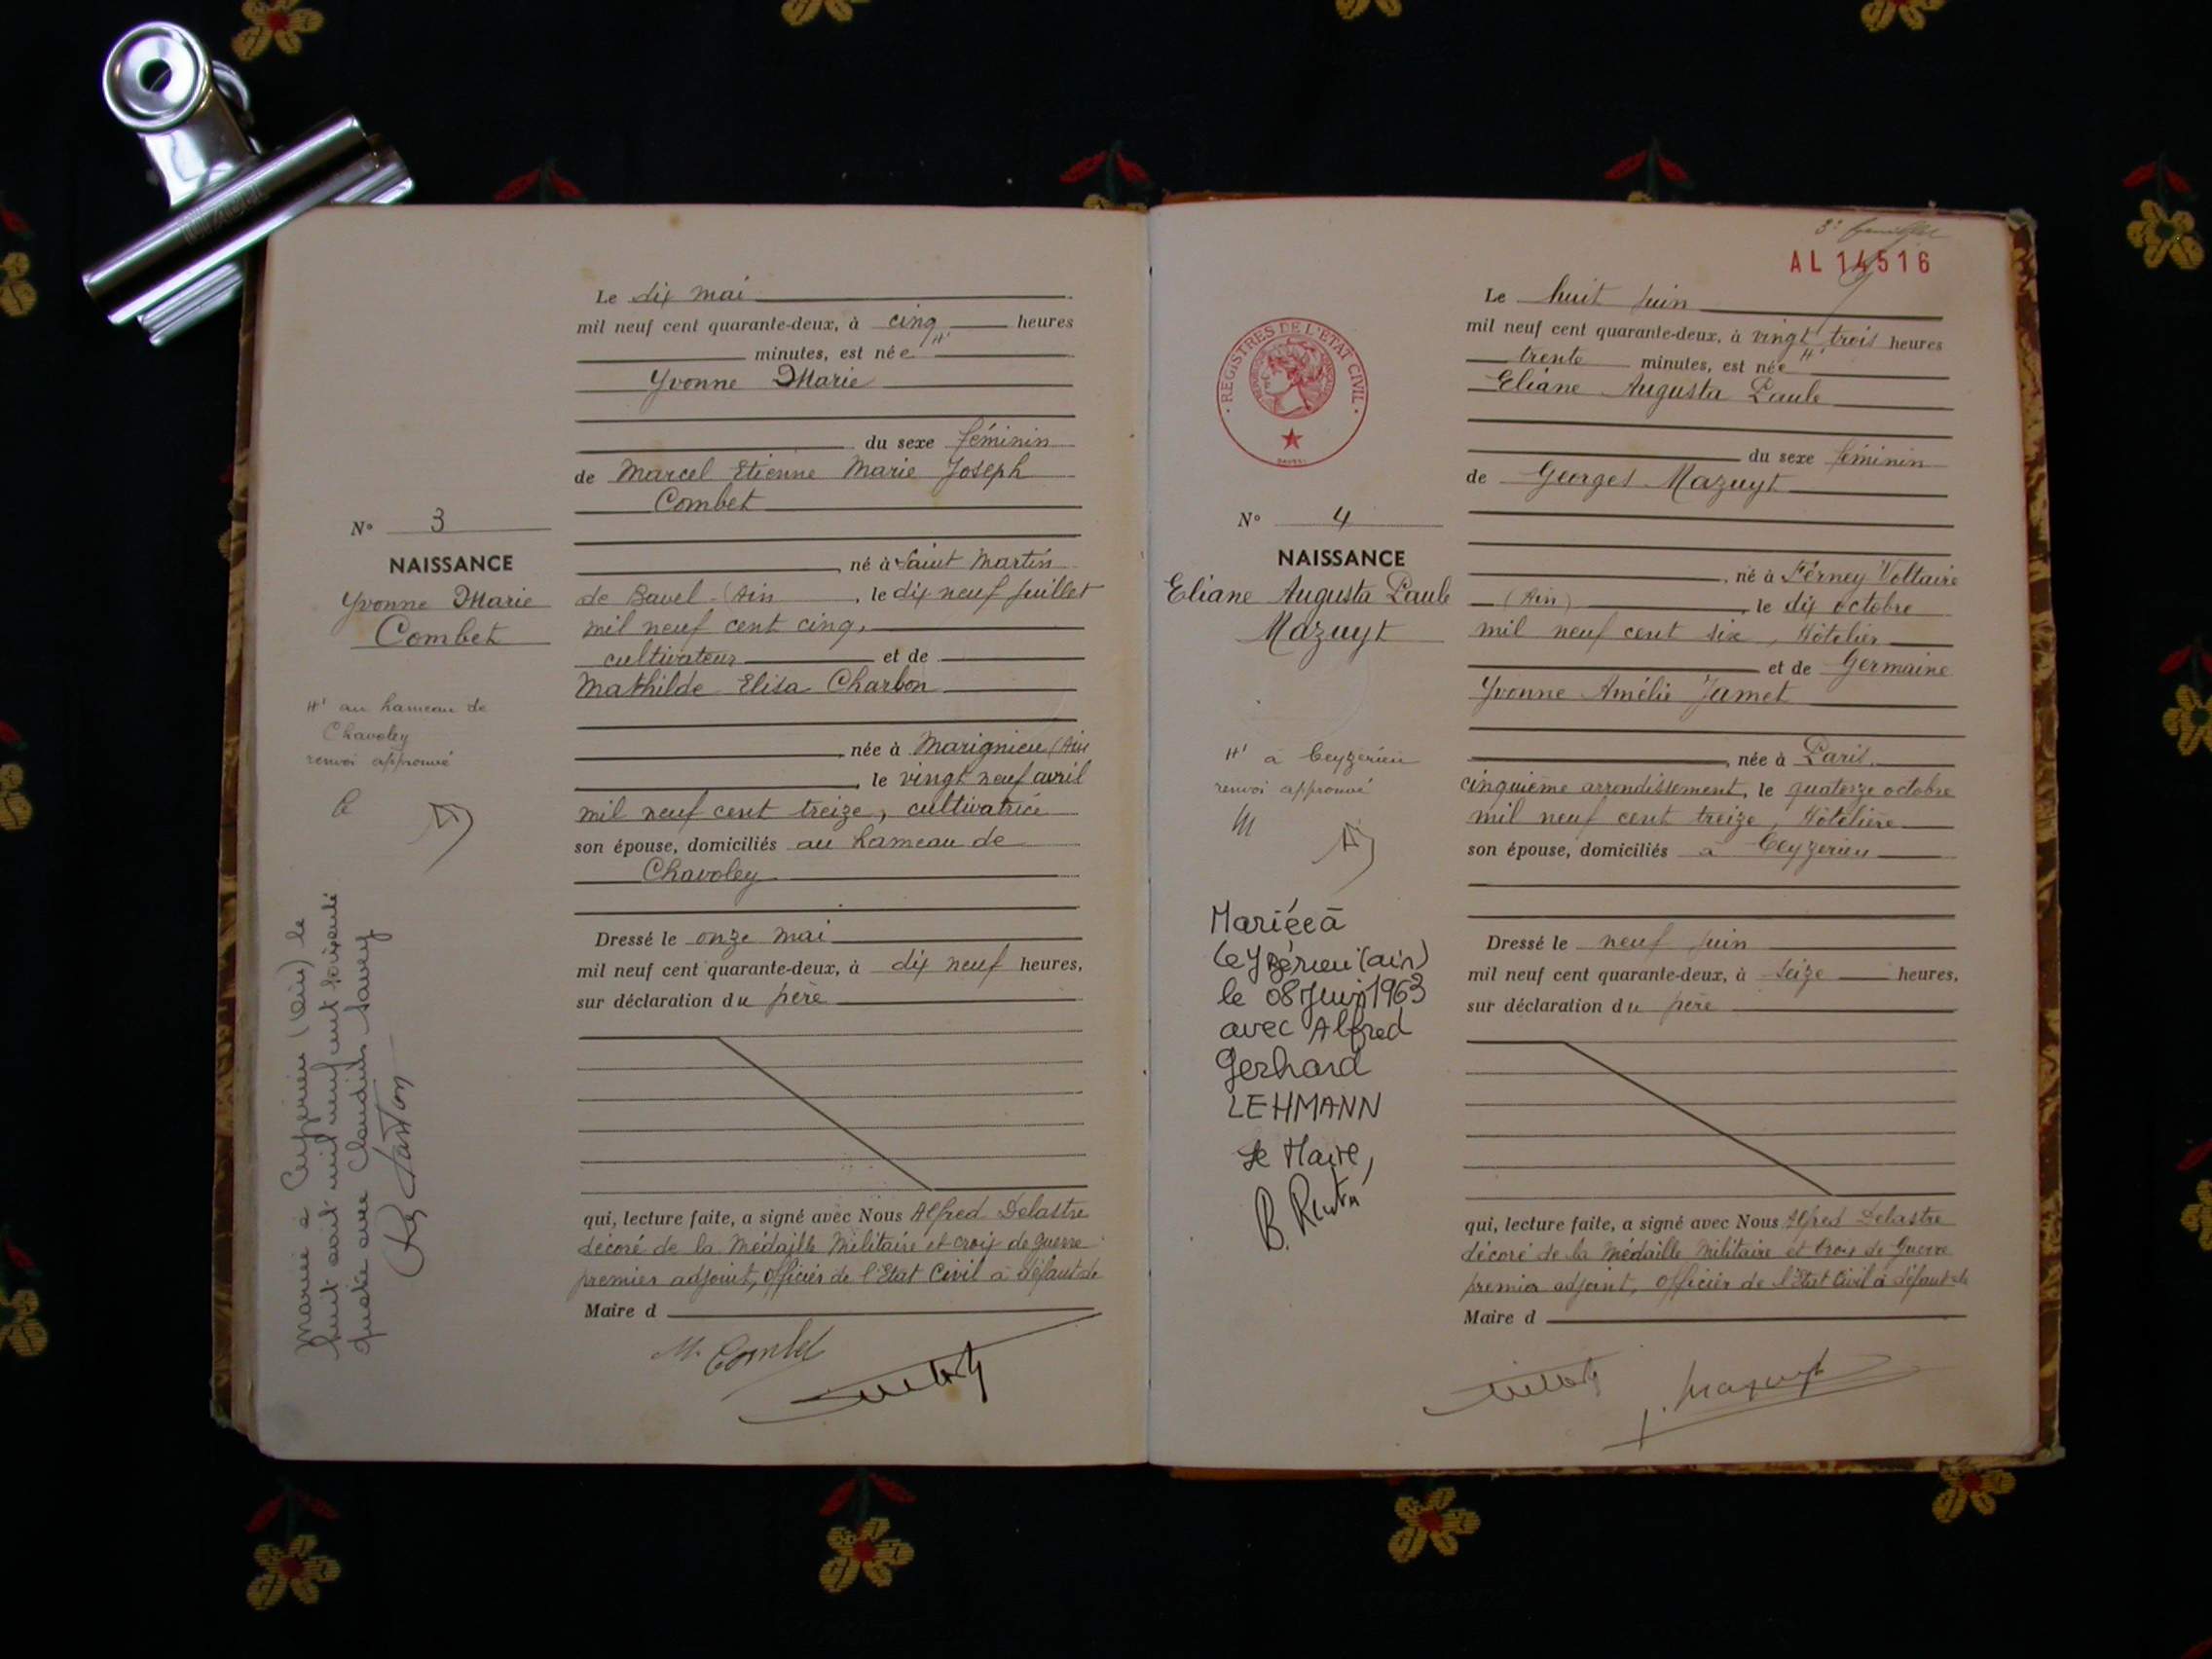 N° 3
NAISSANCE
Yvonne Marie
Combet
H' au hameau de
Chavoley
renvoi approuvé
C
Mariée à Ceyzérieu (Ain) le
huit août mil neuf cent soixante
quatre avec Claudius Savey
Le dix mai
mil neuf cent quarante-deux, à cinq heures
minutes, est née H'
Yvonne Marie
du sexe féminin
de Marcel Etienne Marie Joseph
Combet
né à Saint Martin
de Bavel (Ain , le dix neuf juillet
mil neuf cent cinq,
cultivateur et de
Mathilde Elisa Charbon
née à Marignieu (Ain
, le vingt neuf avril
mil neuf cent treize, cultivatrice
son épouse, domiciliés au hameau de
Chavoley
Dressé le onze mai
mil neuf cent quarante-deux, à dix neuf heures,
sur déclaration du père
qui, lecture faite, a signé avec Nous Alfred Delastre
décoré de la Médaille Militaire et croix de guerre
premier adjoint, Officier de l'Etat Civil à défaut de
Maire d
M. Combet
AL 14516
REGISTRES DE L'ETAT CIVIL
N° 4
NAISSANCE
Eliane Augusta Paule
Mazuyt
H' à Ceyzérieu
renvoi approuvé
M
Mariée à
Ceyzérieu (ain)
le 08 Juin 1963
avec Alfred
Gerhard
LEHMANN
Le Maire,
Le huit juin
mil neuf cent quarante-deux, à vingt trois heures
trente minutes, est née H'
Eliane Augusta Paule
du sexe féminin
de Georges Mazuyt
, né à Ferney Voltaire
(Ain) , le dix octobre
mil neuf cent six, Hôtelier
et de Germaine
Yvonne Amélie Jamet
, née à Paris,
cinquième arrondissement, le quatorze octobre
mil neuf cent treize, Hôtelière
son épouse, domiciliés à Ceyzérieu
Dressé le neuf juin
mil neuf cent quarante-deux, à seize heures,
sur déclaration du père
qui, lecture faite, a signé avec Nous Alfred Delastre
décoré de la Médaille Militaire et Croix de Guerre
premier adjoint, Officier de l'Etat Civil à défaut de
Maire d
Mazuyt